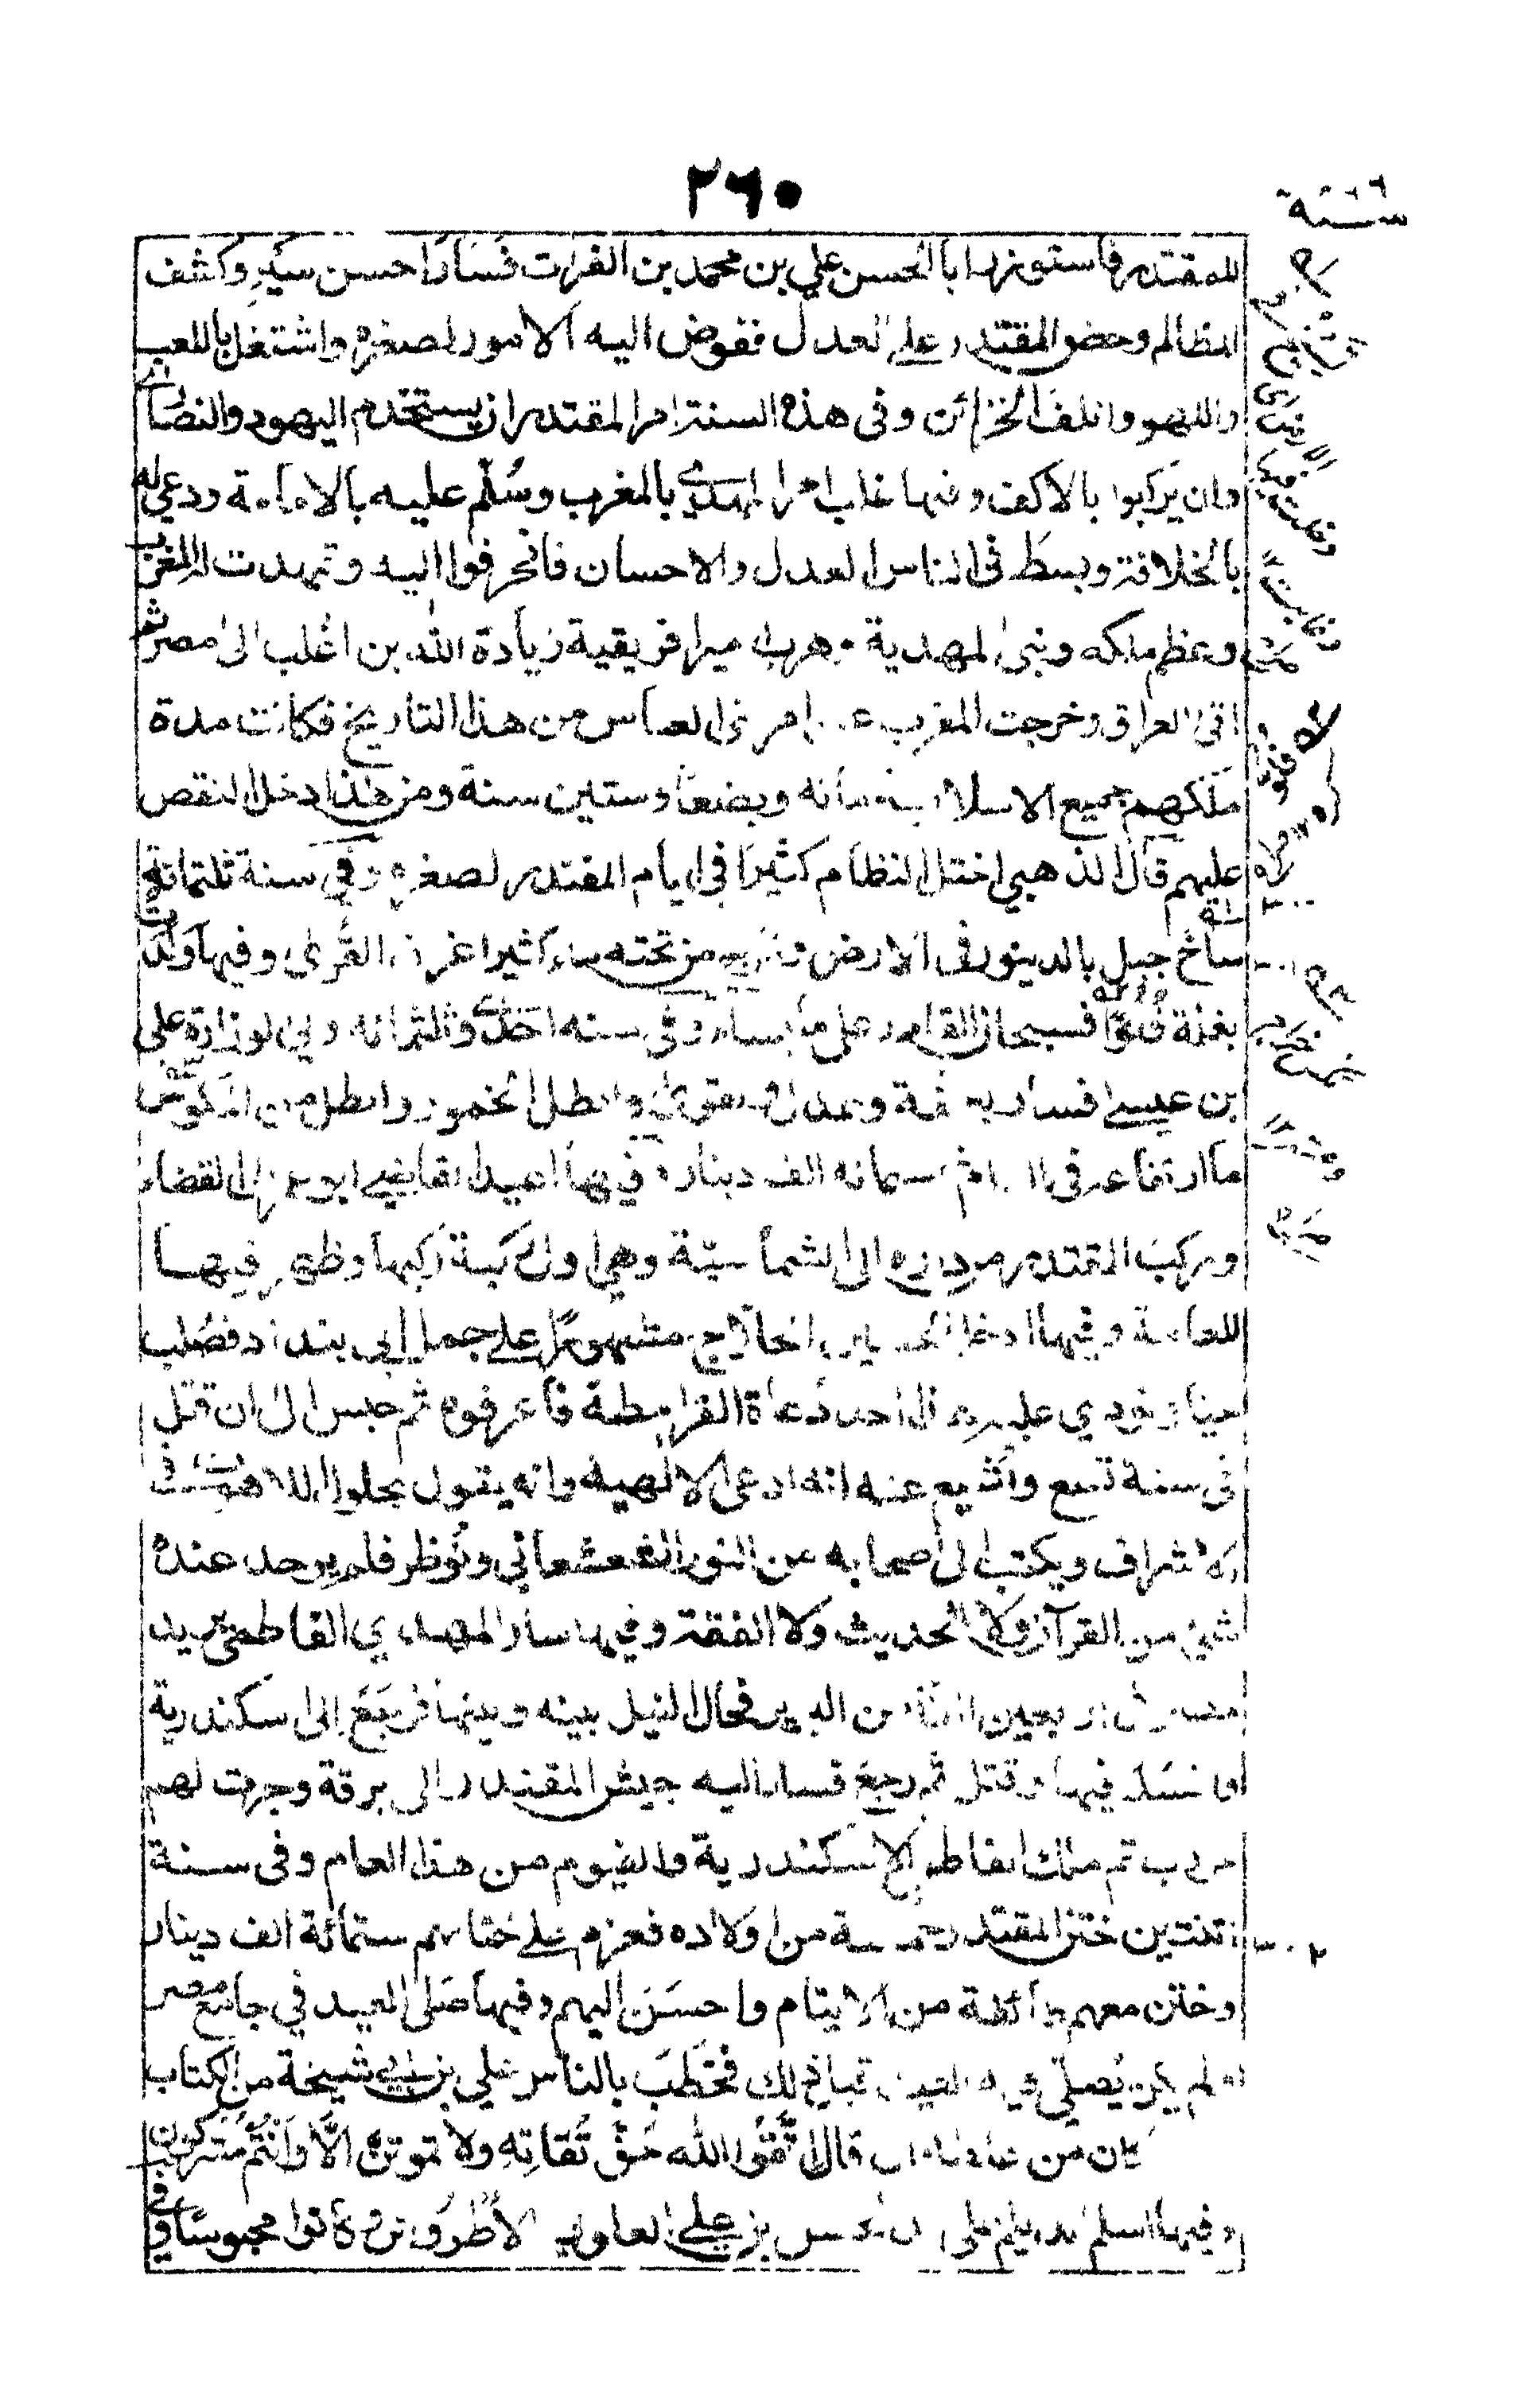 ٢٦٠
سنة
للمقتدر فاستوزر ابا الحسن علي بن محمد بن الفرات فسار احسن سير وكشف
المظالم وحض المقتدر على العدل ففوض اليه الامور لصغره واشتغل باللعب
واللهو واتلف الخزائن وفى هذه السنة امر المقتدر ان يستخدم اليهود والنصارى
وان يركبوا بالاكف وفيها غلب امر المهدي بالمغرب وسُلّم عليه بالامامة ودعي له
بالخلافة وبسط فى الناس العدل والاحسان فانحرفوا اليه وتمهدت له المغرب
وعظم ملكه وبنى المهدية وهرب امير افريقية زيادة الله بن اغلب الى مصر ثم
اتى العراق وخرجت المغرب عن امر بنى العباس من هذا التاريخ فكانت مدة
ملكهم جميع الاسلام مأنه وبضعا وستين سنة ومن هذا دخل النقص
عليهم قال الذهبي اختل النظام كثيرا فى ايام المقتدر لصغره وفي سنة ثلثمائة
٣٠٠
ساخ جبل بالدينور فى الارض وخرج من تحته ماء كثير اغرق القرى وفيها ولدت
بغلة فلوا فسبحان القادر على ما يشاء وفى سنه احدى وثلثمائه ولي الوزارة على
بن عيسى فسار بعفة وعدل وتقوى وابطل الخمور وابطل من المكوس
ما ارتفاعه فى العام خمسمائه الف دينار وفيها اعيد القاضي ابو عمر الى القضاء
وركب المقتدر من داره الى الشماسيّة وهى اول ركبة ركبها وظهر فيها
للعامة وفيها ادخل الحسين الحلاج مشهورا على جمل الى بغداد فصُلب
حيا ونودي عليه هذا احد دعاة القرامطة فاعرفوه ثم حبس الى ان قتل
فى سنة تسع واشيع عنه انه ادعى الالهية وانه يقول بحلول اللاهوت فى
الاشراف ويكتب الى اصحابه من النور الشعشعاني ونُوظر فلم يوجد عنده
شيء من القرآن ولا الحديث ولا الفقه وفيها سار المهدي الفاطمي يريد
مصر فى اربعين الفا من البربر فحال النيل بينه وبينها فرجع الى اسكندرية
وافسد فيها وقتل ثم رجع فسار اليه جيش المقتدر الى برقة وجرت لهم
حروب ثم ملك الفاطمي الاسكندرية والفيوم من هذا العام وفى سنة
٣٠٢
اثنتين ختن المقتدر خمسة من اولاده فغرم على ختانهم ستمائة الف دينار
وختن معهم طائفة من الايتام واحسن اليهم وفيها صلى العيد في جامع مصر
ولم يكن يُصلى فيه العيد قبل ذلك فخطب بالناس علي بن ابي شيخة من الكتاب
كان من غلطه ان قال اتقوا الله حق تقاته ولا تموتن الا وانتم مشركون
وفيها اسلم الديلم على يد الحسن بن علي العلوي الاطروش وكانوا مجوسا وفي